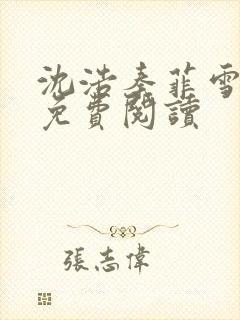 沈浩秦菲雪
免費閱讀
張志偉